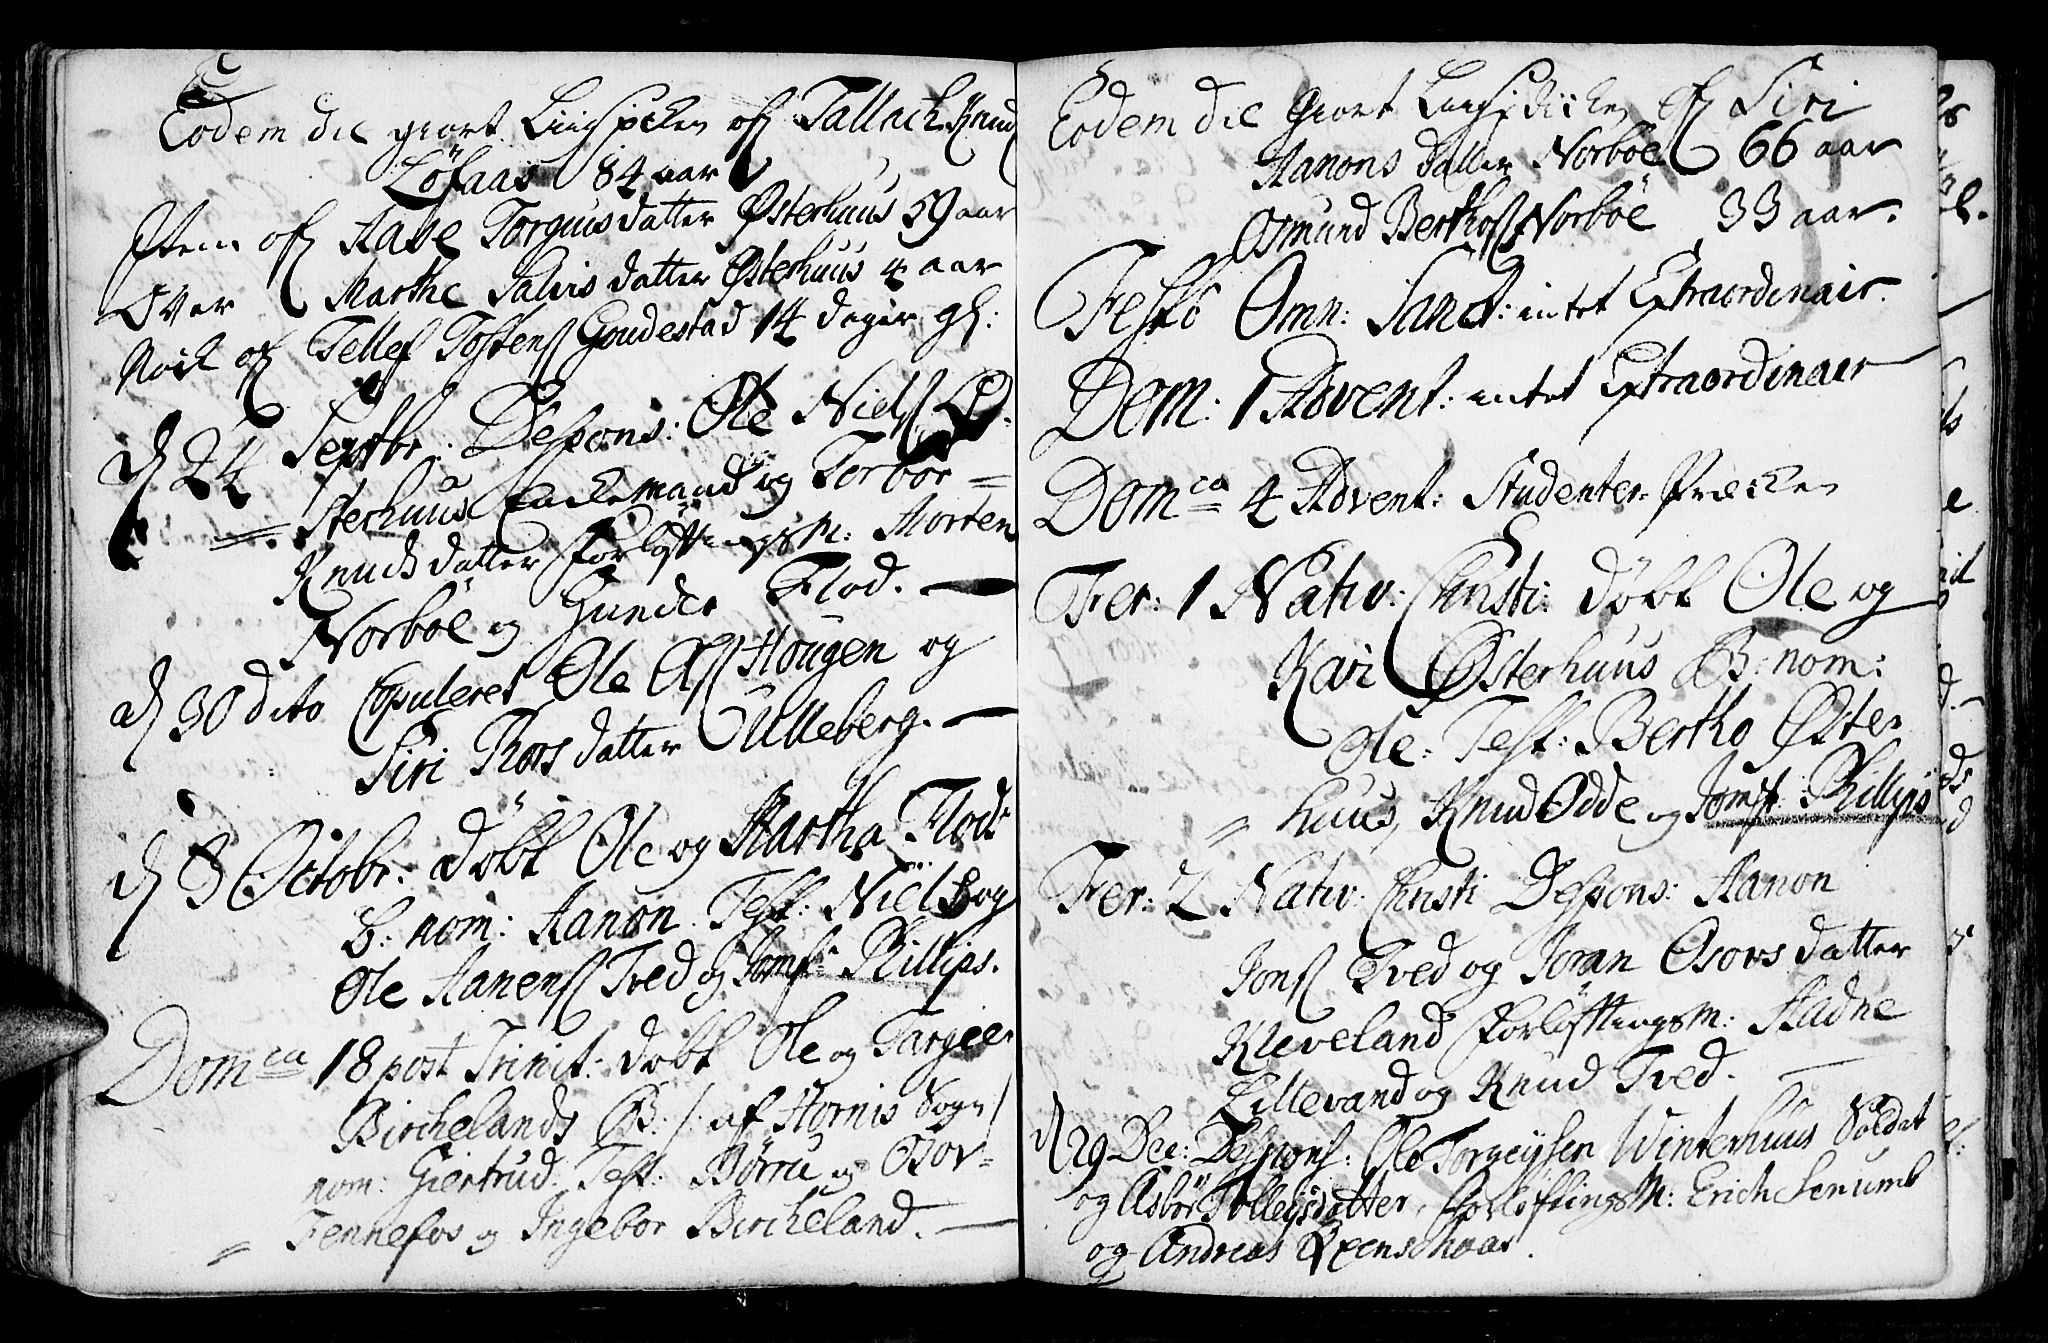 Eodem die giort Liigpreken af Tallach Knuds
Löfaas 84 aar
Item af Aase Torguusdatter Østerhuus 59 aar
Over Marthe Salvis datter Østerhuus 4 aar
Nock af Tellef Tostens Goudestad 14 dager gl:
d 24 Septbr: Despons: Ole Niels Ø=
=sterhuus Enckemand og Torbor=
Knuds datter Forloftningsm: Morten
Norböe og Gunder Flod.
d 30 dito Copuleret Ole Ols Hougen og
Siri Thorsdatter Ulleberg.
d 3 Octobr: döbt Ole og Martha Flods
B: nom: Aanon. Test: Niels og
Ole Aanens Tved og Jomf: Phillips.
Domca 18 post Trinit: döbt Ole og Targier
Birchelands B: /: af Hornis Sogn /
nom: Giertrud. Test: Börru og Osor=
= Fennefos og Ingebor Bircheland.
Eodem die Giort Liigpreken af Siri
Aanons datter Norböe 66 aar
Osmund Berthos Norböe 33 aar.
Festo Omn: Sanct: intet Extraordinair.
Dom: 1 Advent: intet Extraordinair
Domca 4 Advent: Studenter-Præcken
Fer: 1 Nativ: Christi: döbt Ole og
Kari Østerhuus B: nom:
Ole: Test: Bertho Øster
= huus, Knud Odde og Jomfr: Phillips
Fer: 2 Nativ: Christi Despons: Aanon
Jons Tved og Joran Osors datter
Kleveland Forlöftningsm: Aadne
Lillevand og Knud Tved.
d 29 Dec: Despons: Ole Torgeysen Winterhuus Soldat
og Asbor Tolleifsdatter, Forlöftningsm: Erich
og Andreas